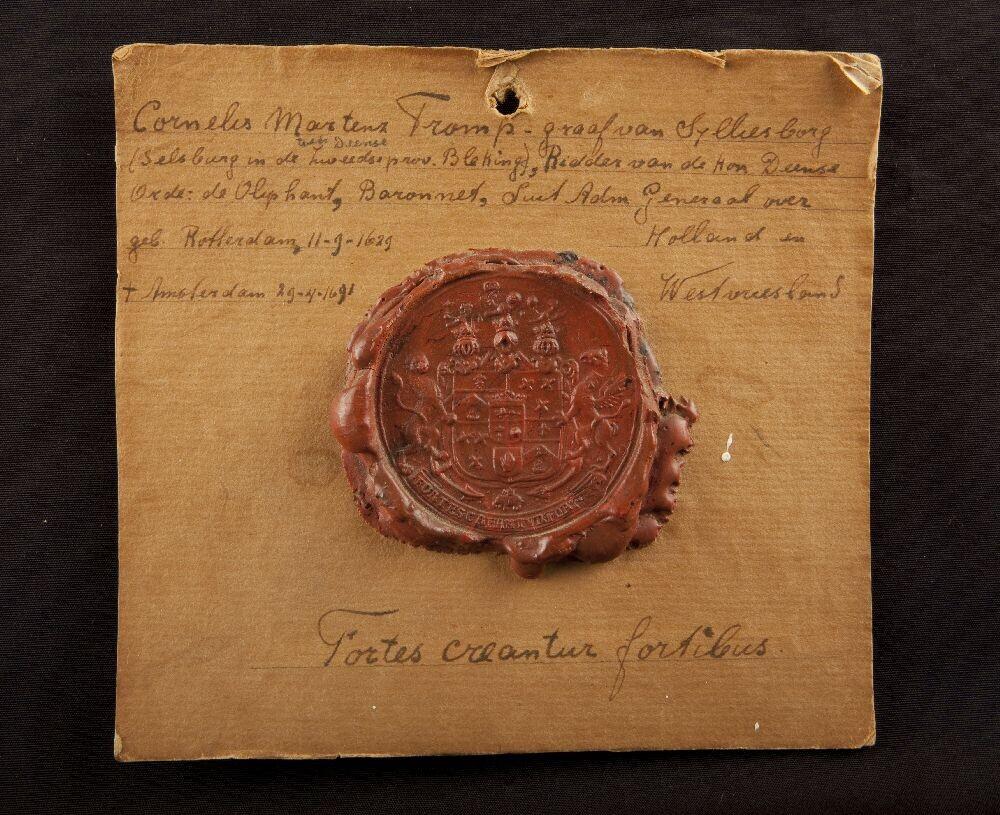 Cornelis Martens Tromp - graaf van Sylliesborg
toen Deense
(Selsburg in de Zweedse prov. Bleking), Ridder van de Kon Deense
Orde: de Oliphant, Baronnet, Luit Adm Generaal over
geb. Rotterdam 11-9-1629
Holland en
† Amsterdam 29-4-1691
Westvriesland
Fortes creantur fortibus.